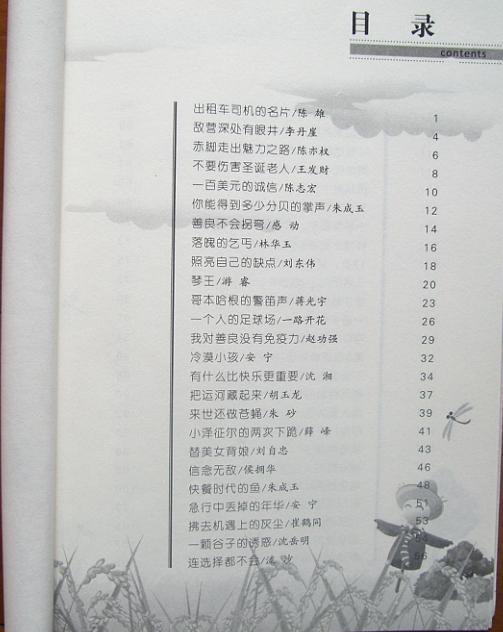 目 录
contents
出租车司机的名片/陈 雄 1
敌营深处有眼井/李丹崖 4
赤脚走出魅力之路/陈亦权 6
不要伤害圣诞老人/王发财 8
一百美元的诚信/陈志宏 10
你能得到多少分贝的掌声/朱成玉 12
善良不会拐弯/感 动 14
落魄的乞丐/林华玉 16
照亮自己的缺点/刘东伟 18
琴王/游 睿 20
哥本哈根的警笛声/蒋光宇 23
一个人的足球场/一路开花 26
我对善良没有免疫力/赵功强 29
冷漠小孩/安 宁 32
有什么比快乐更重要/沈 湘 34
把运河藏起来/胡玉龙 37
来世还做苍蝇/朱 砂 39
小泽征尔的两次下跪/薛 峰 41
替美女背娘/刘自忠 43
信念无敌/侯拥华 46
快餐时代的鱼/朱成玉 48
急行中丢掉的年华/安 宁 51
拂去机遇上的灰尘/崔鹤同 53
一颗谷子的诱惑/沈岳明
连选择都不会/流 沙 56